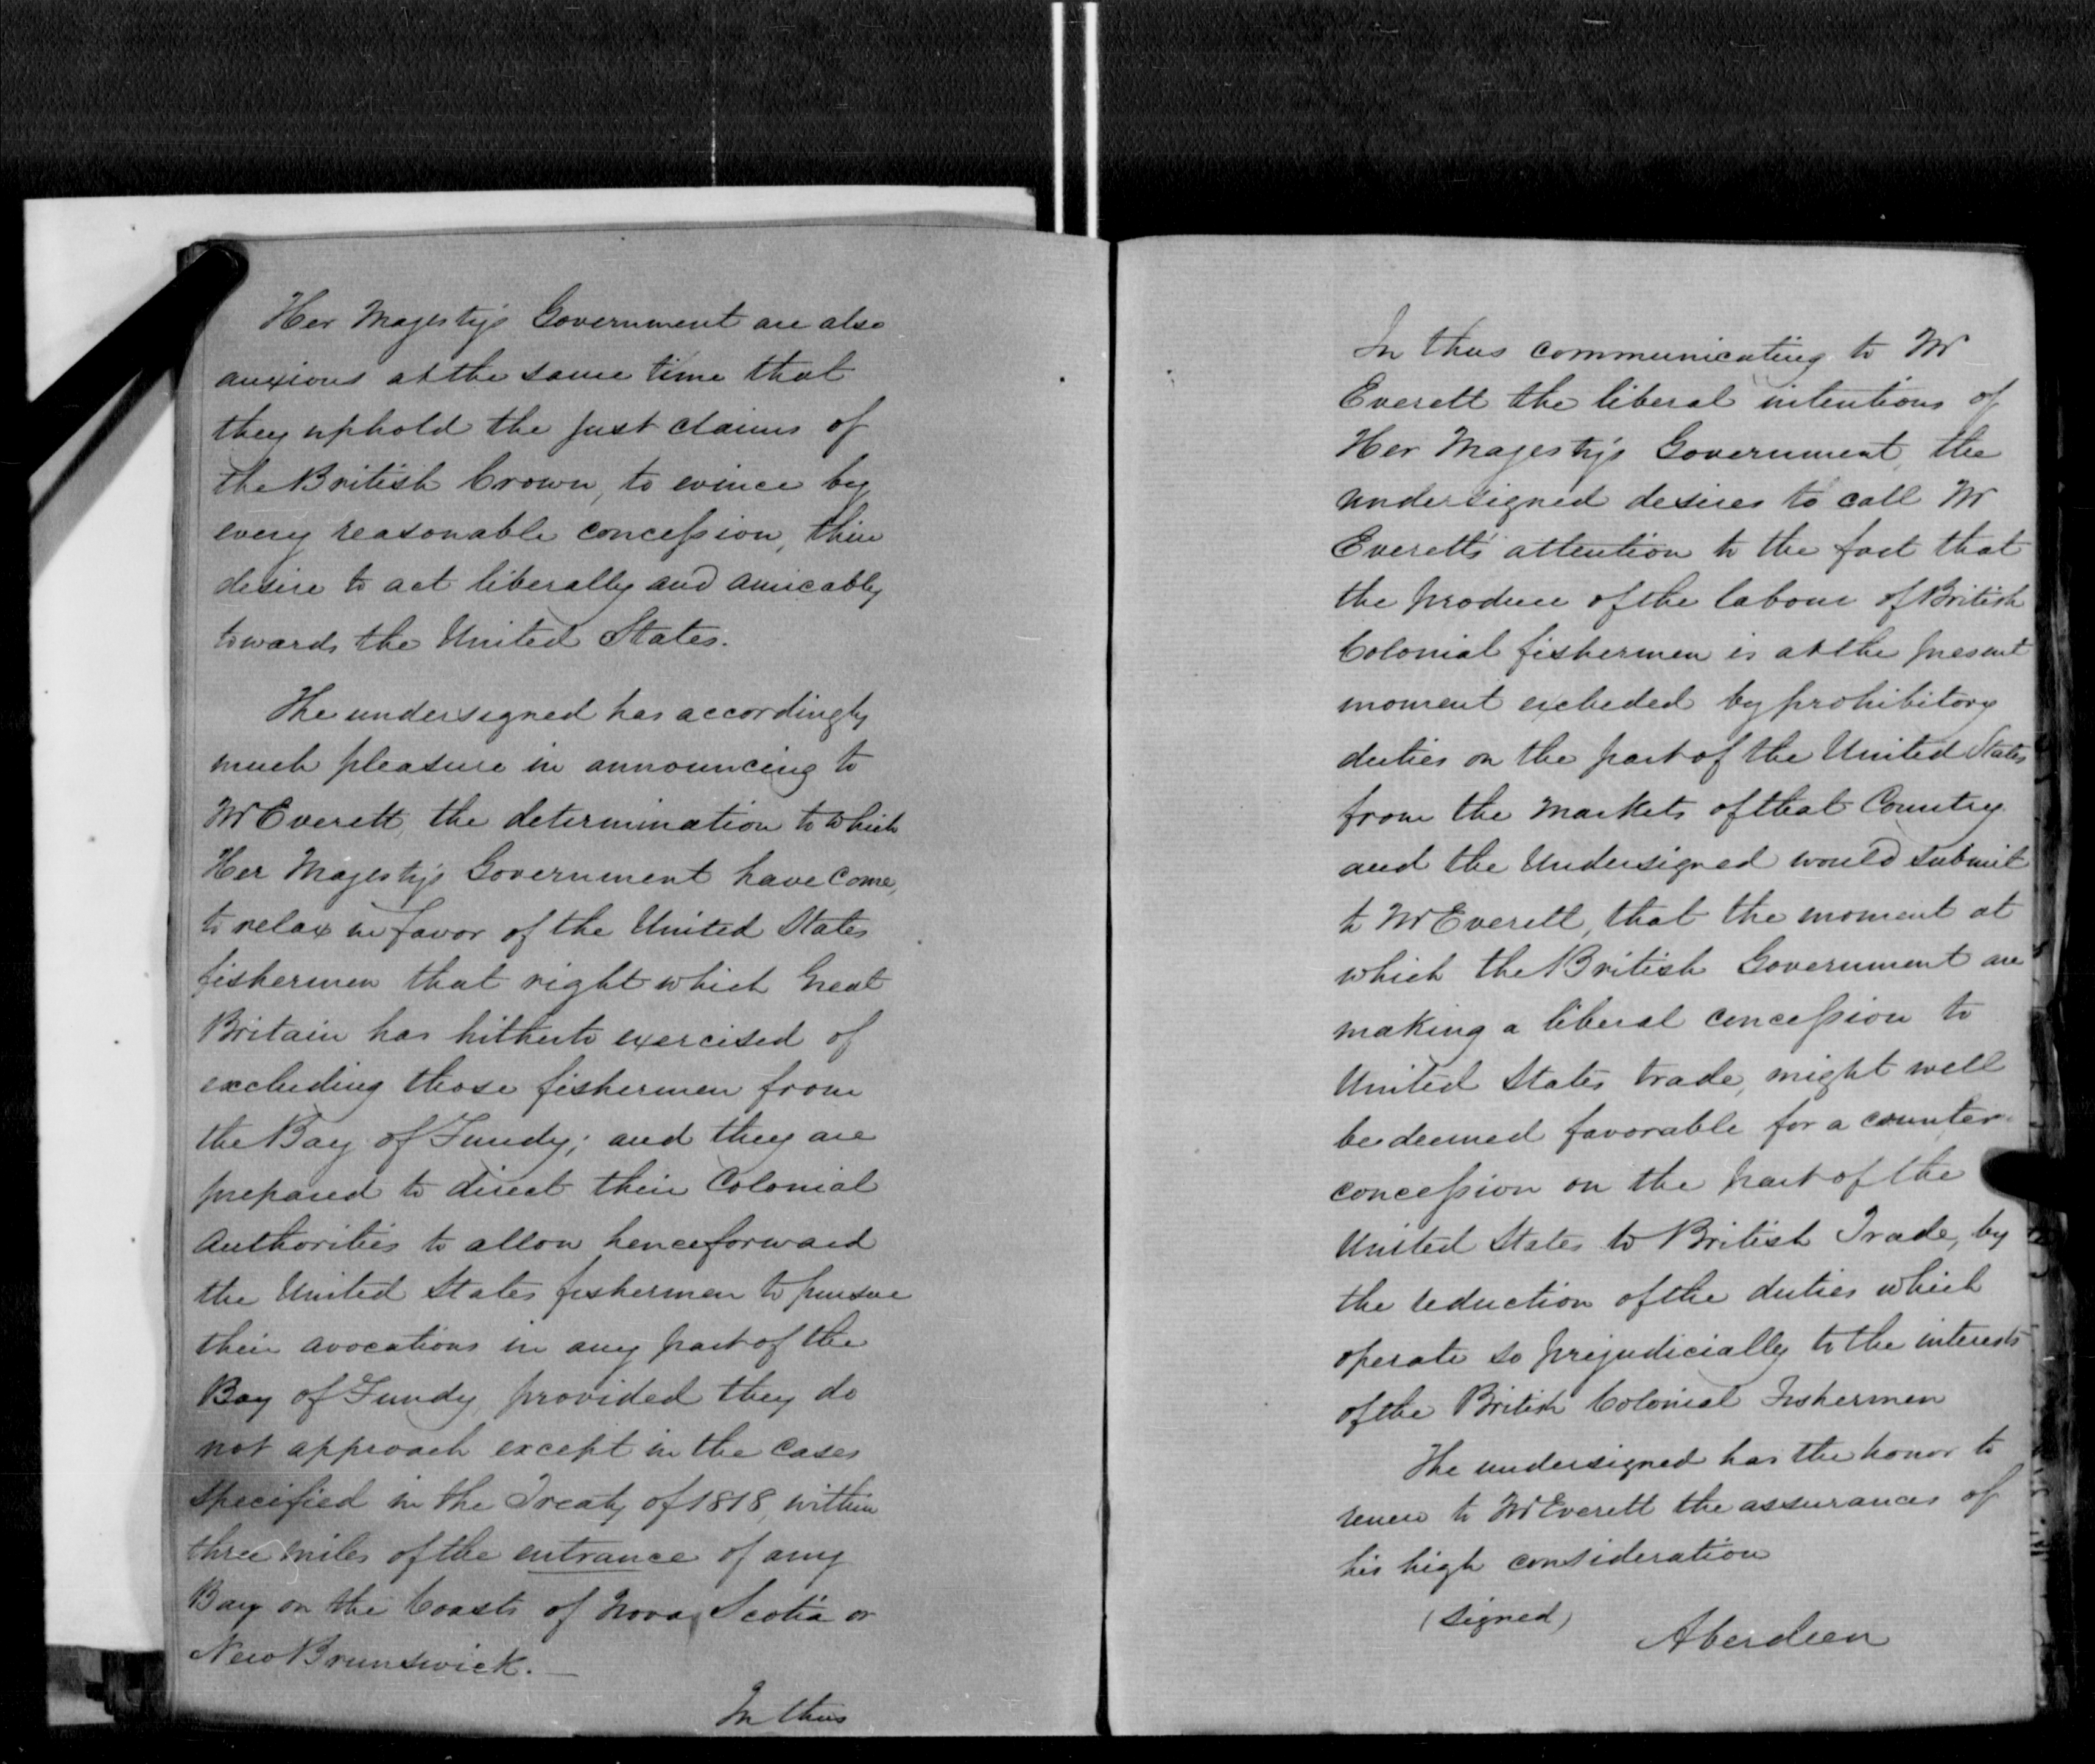 Her Majesty's Government are also
anxious at the same time that
they uphold the just claims of
the British Crown, to evince by
every reasonable concession, their
desire to act liberally and amicably
towards the United States.
The undersigned has accordingly
much pleasure in announcing to
Mr Everett, the determination to which
Her Majesty's Government have come,
to relax in favor of the United States
fishermen that right which Great
Britain has hitherto exercised of
excluding those fishermen from
the Bay of Fundy; and they are
prepared to direct their Colonial
Authorities to allow henceforward
the United States fishermen to pursue
their avocations in any part of the
Bay of Fundy, provided they do
not approach except in the cases
specified in the Treaty of 1818, within
three miles of the entrance of any
Bay on the Coasts of Nova Scotia or
New Brunswick.
In thus
In thus communicating to Mr
Everett the liberal intentions of
Her Majesty's Government, the
undersigned desires to call Mr
Everett's attention to the fact that
the produce of the labour of British
Colonial fishermen is at the present
moment excluded by prohibitory
duties on the part of the United States
from the markets of that Country
and the Undersigned would submit
to Mr Everett, that the moment at
which the British Government are
making a liberal concession to
United States trade, might well
be deemed favorable for a counter-
concession on the part of the
United States to British Trade, by
the reduction of the duties which
operate so prejudicially to the interests
of the British Colonial Fishermen
The undersigned has the honor to
renew to Mr Everett the assurances of
his high consideration
(signed)
Aberdeen